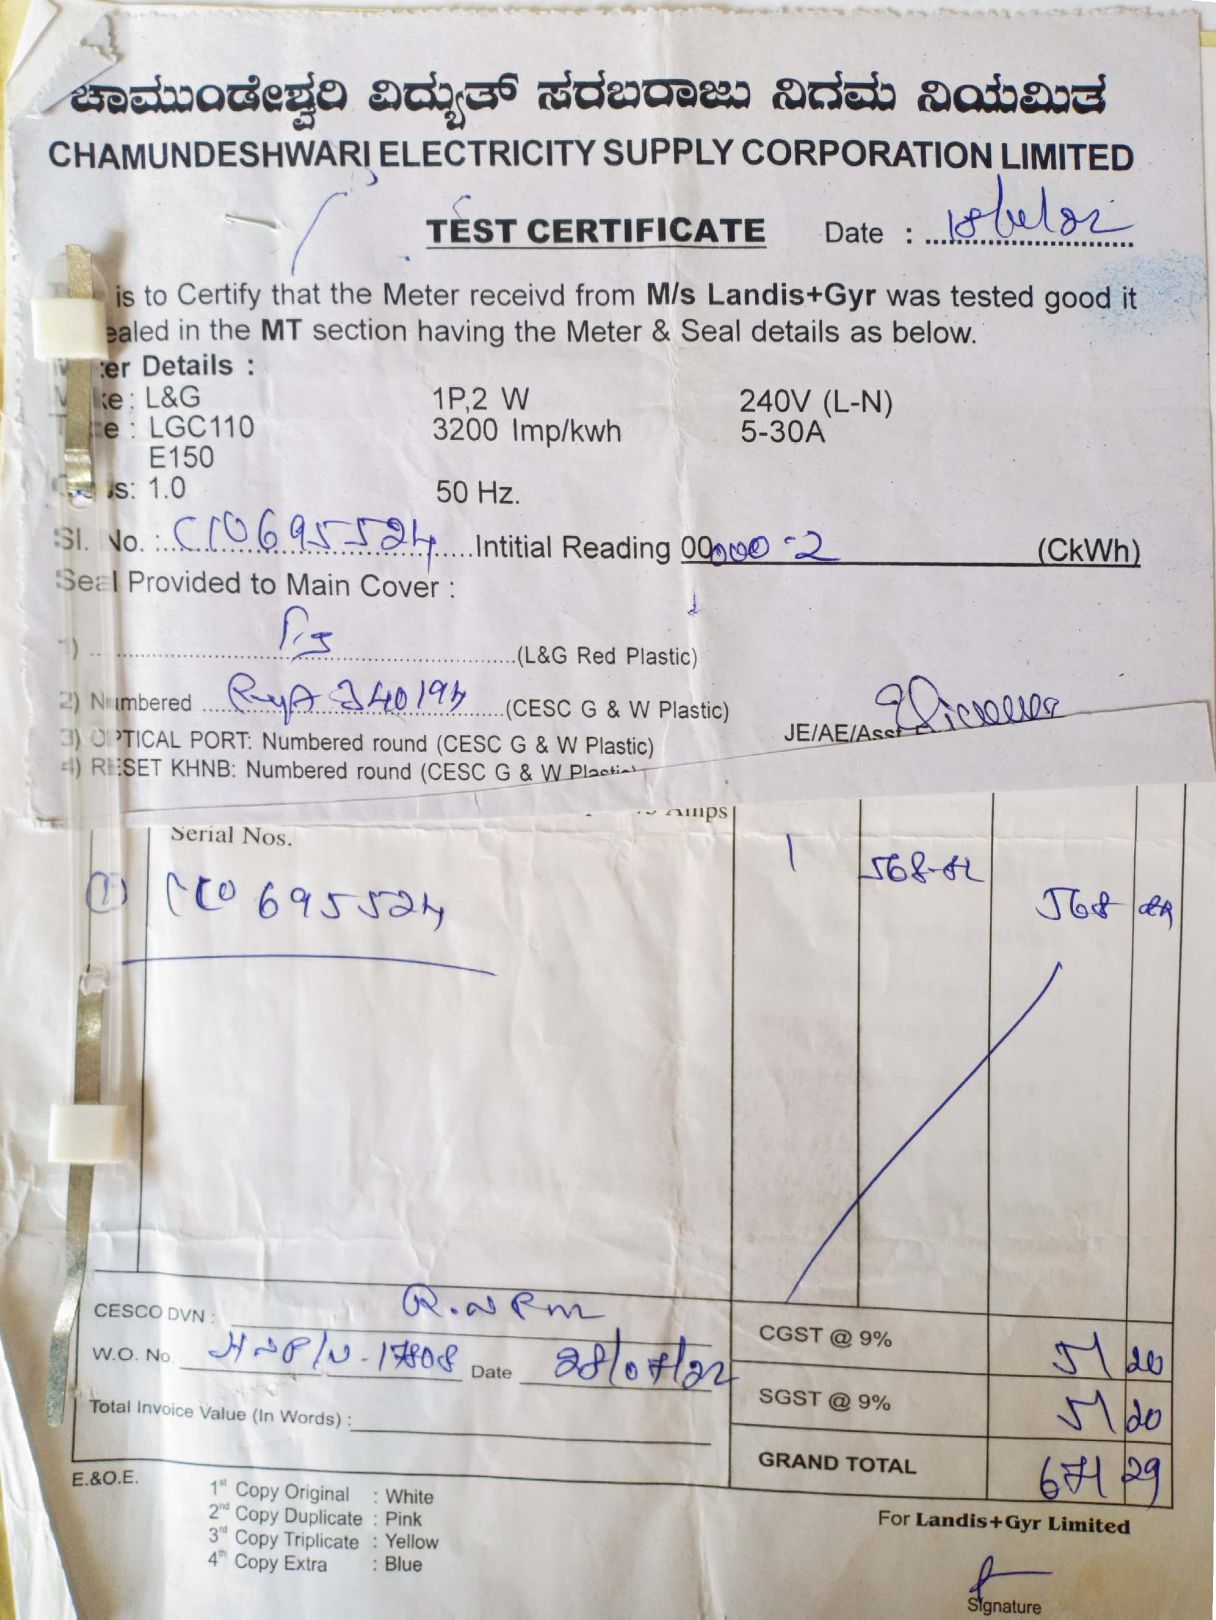 ಚಾಮುಂಡೇಶ್ವರಿ ವಿದ್ಯುತ್ ಸರಬರಾಜು ನಿಗಮ ನಿಯಮಿತ
CHAMUNDESHWARI ELECTRICITY SUPPLY CORPORATION LIMITED
TEST CERTIFICATE Date :
is to Certify that the Meter receivd from M/s Landis+Gyr was tested good it
ealed in the MT section having the Meter & Seal details as below.
er Details :
ke : L&G 1P,2 W 240V (L-N)
e : LGC110 3200 Imp/kwh 5-30A
E150
s: 1.0 50 Hz.
Sl. No. : C10695524 Intitial Reading 00000-2 (CkWh)
Seal Provided to Main Cover :
1) (L&G Red Plastic)
2) Numbered 340194 (CESC G & W Plastic)
JE/AE/Asst
3) OPTICAL PORT: Numbered round (CESC G & W Plastic)
4) RESET KHNB: Numbered round (CESC G & W Plastic)
Amps
Serial Nos.
1 568-82
(1) CC0695524 568 82
CESCO DVN :
W.O. No. -17808 Date 28/07/22
CGST @ 9% 51 20
Total Invoice Value (In Words) :
SGST @ 9% 51 20
GRAND TOTAL 671 29
E.&O.E.
1st Copy Original : White
2nd Copy Duplicate : Pink
3rd Copy Triplicate : Yellow
4th Copy Extra : Blue
For Landis+Gyr Limited
Signature